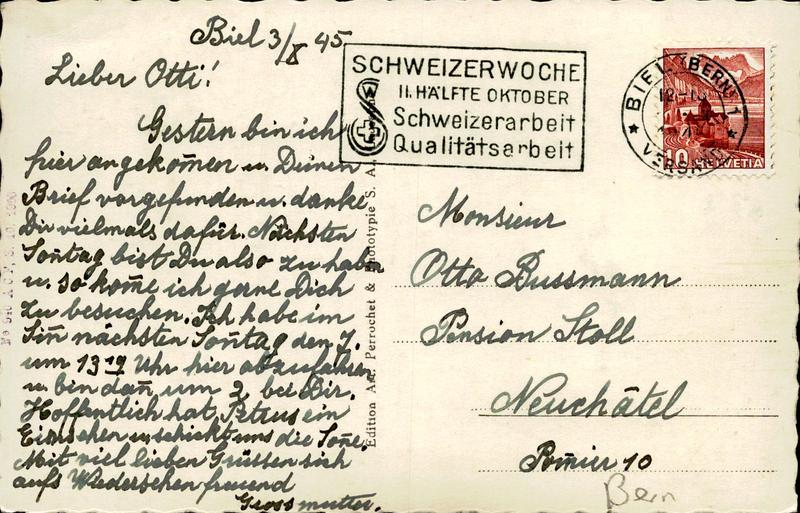 Biel 3/X 45
Lieber Otti!
Gestern bin ich
hier angekom̅en u. Deinen
Brief vorgefunden u. danke
Dir vielmals dafür. Nächsten
Son̅tag bist Du also zu haben
u. so kom̅e ich gerne Dich
zu besuchen. Ich habe im
Sin̅ nächsten Son̅tag den 7.
um 13 19 Uhr hier abzufahren
u. bin dan̅ um 2 bei Dir.
Hoffentlich hat Petrus ein
Einsehen u. schickt uns die Son̅e.
Mit viel lieben Grüssen sich
aufs Wiedersehen freuend
Grossmutter.
SCHWEIZERWOCHE
II. HÄLFTE OKTOBER
Schweizerarbeit
Qualitätsarbeit
BIEL (BERN) 1
VERSAND
10 HELVETIA
Edition Art. Perrochet & Phototypie S. A.
Monsieur
Otto Bussmann
Pension Stoll
Neuchâtel
Pomier 10
Bern